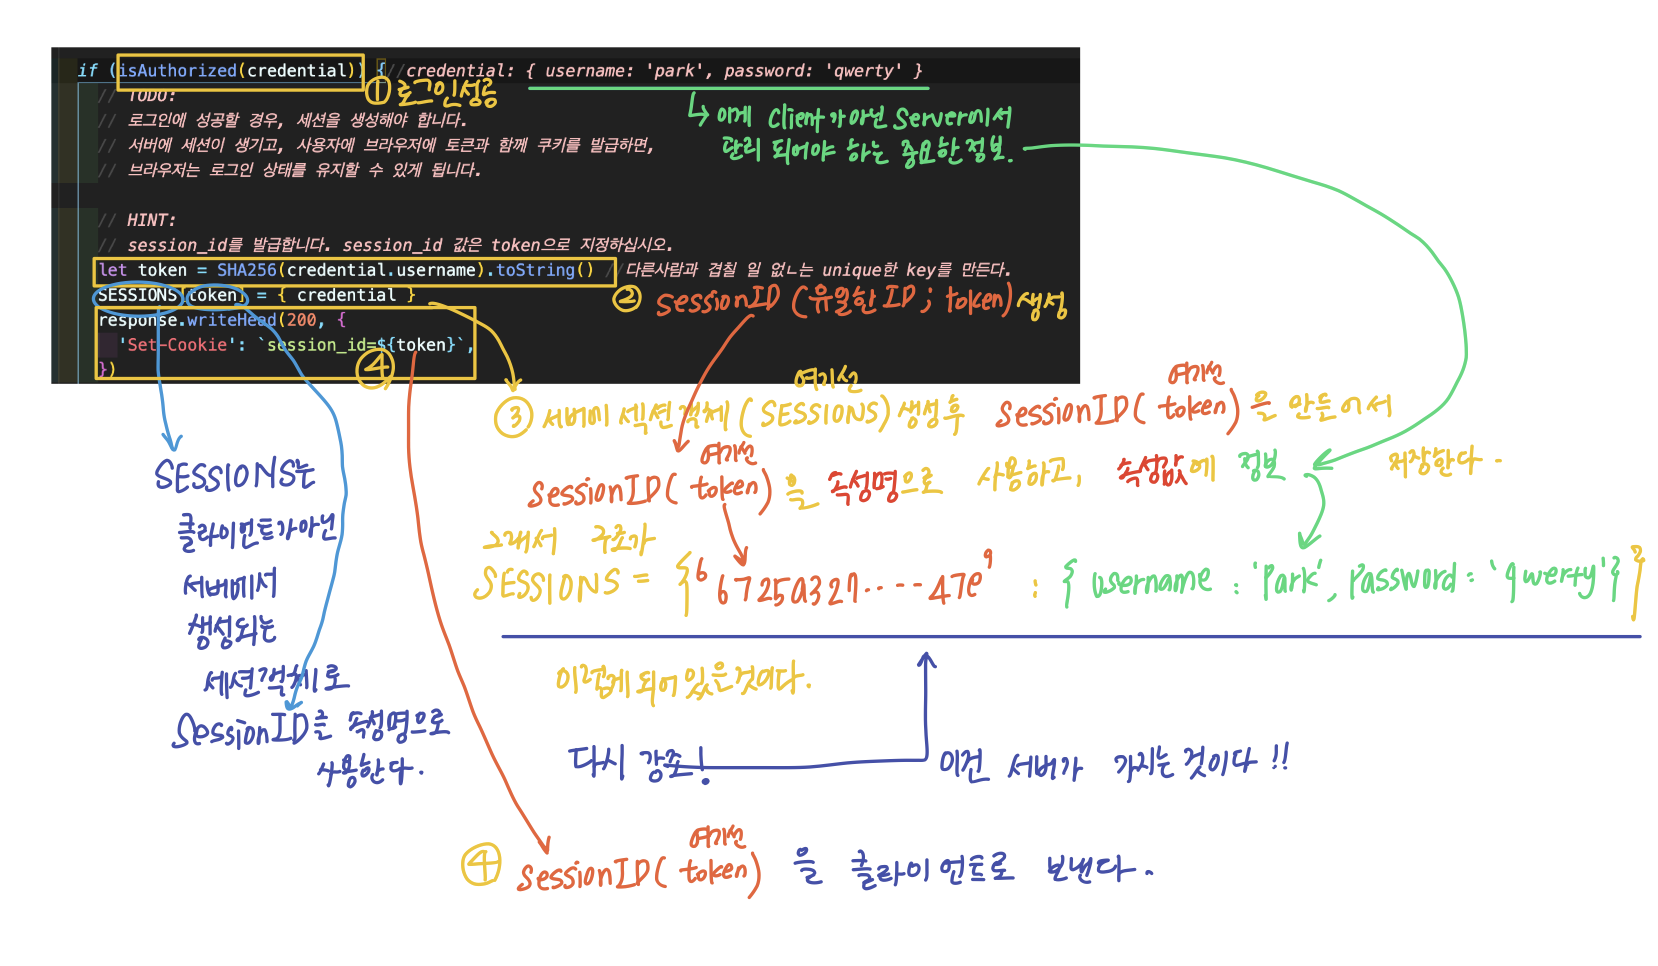 if (isAuthorized(credential)) { //credential: { username: 'park', password: 'qwerty' }
① 로그인성공
// TODO:
// 로그인에 성공할 경우, 세션을 생성해야 합니다.
// 서버에 세션이 생기고, 사용자에 브라우저에 토큰과 함께 쿠키를 발급하면,
// 브라우저는 로그인 상태를 유지할 수 있게 됩니다.
↳ 이게 Client가 아닌 Server에서
관리 되어야 하는 중요한 정보.
// HINT:
// session_id를 발급합니다. session_id 값은 token으로 지정하십시오.
let token = SHA256(credential.username).toString() //다른사람과 겹칠 일 없ㄴ는 unique한 key를 만든다.
SESSIONS[token] = { credential }
② SessionID (유일한 ID ; token) 생성
response.writeHead(200, {
'Set-Cookie': `session_id=${token}`,
})
④
여기선
여기선
③ 서버에 섹션객체 (SESSIONS) 생성후 SessionID( token) 을 만든어서
여기선
SessionID( token) 을 속성명으로 사용하고, 속성값에 정보 저장한다.
그래서 구조가
SESSIONS = {'67250a327....47e' : { username : 'Park', Password : 'qwerty'}}
이렇게 되어 있은것이다.
SESSIONS는
클라이언트가 아닌
서버에서
생성되는
세션객체로
SessionID를 속성명으로
사용한다.
다시 강조! 이건 서버가 가지는 것이다 !!
여기선
④ SessionID( token) 을 클라이언트로 보낸다.